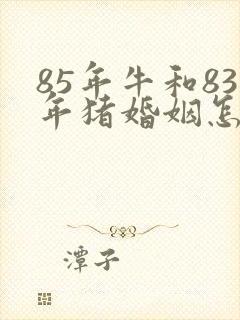 85年牛和83
年猪婚姻怎
潭子